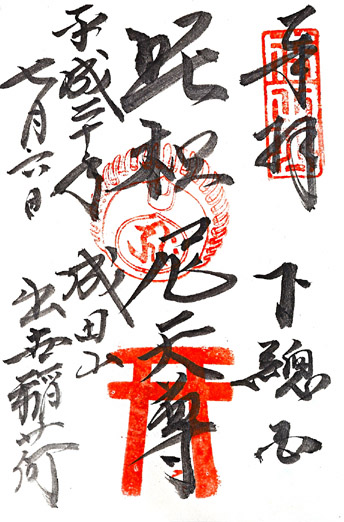 奉拝 下總国
吒枳尼天尊
平成二十年 成田山
七月六日 出世稲荷